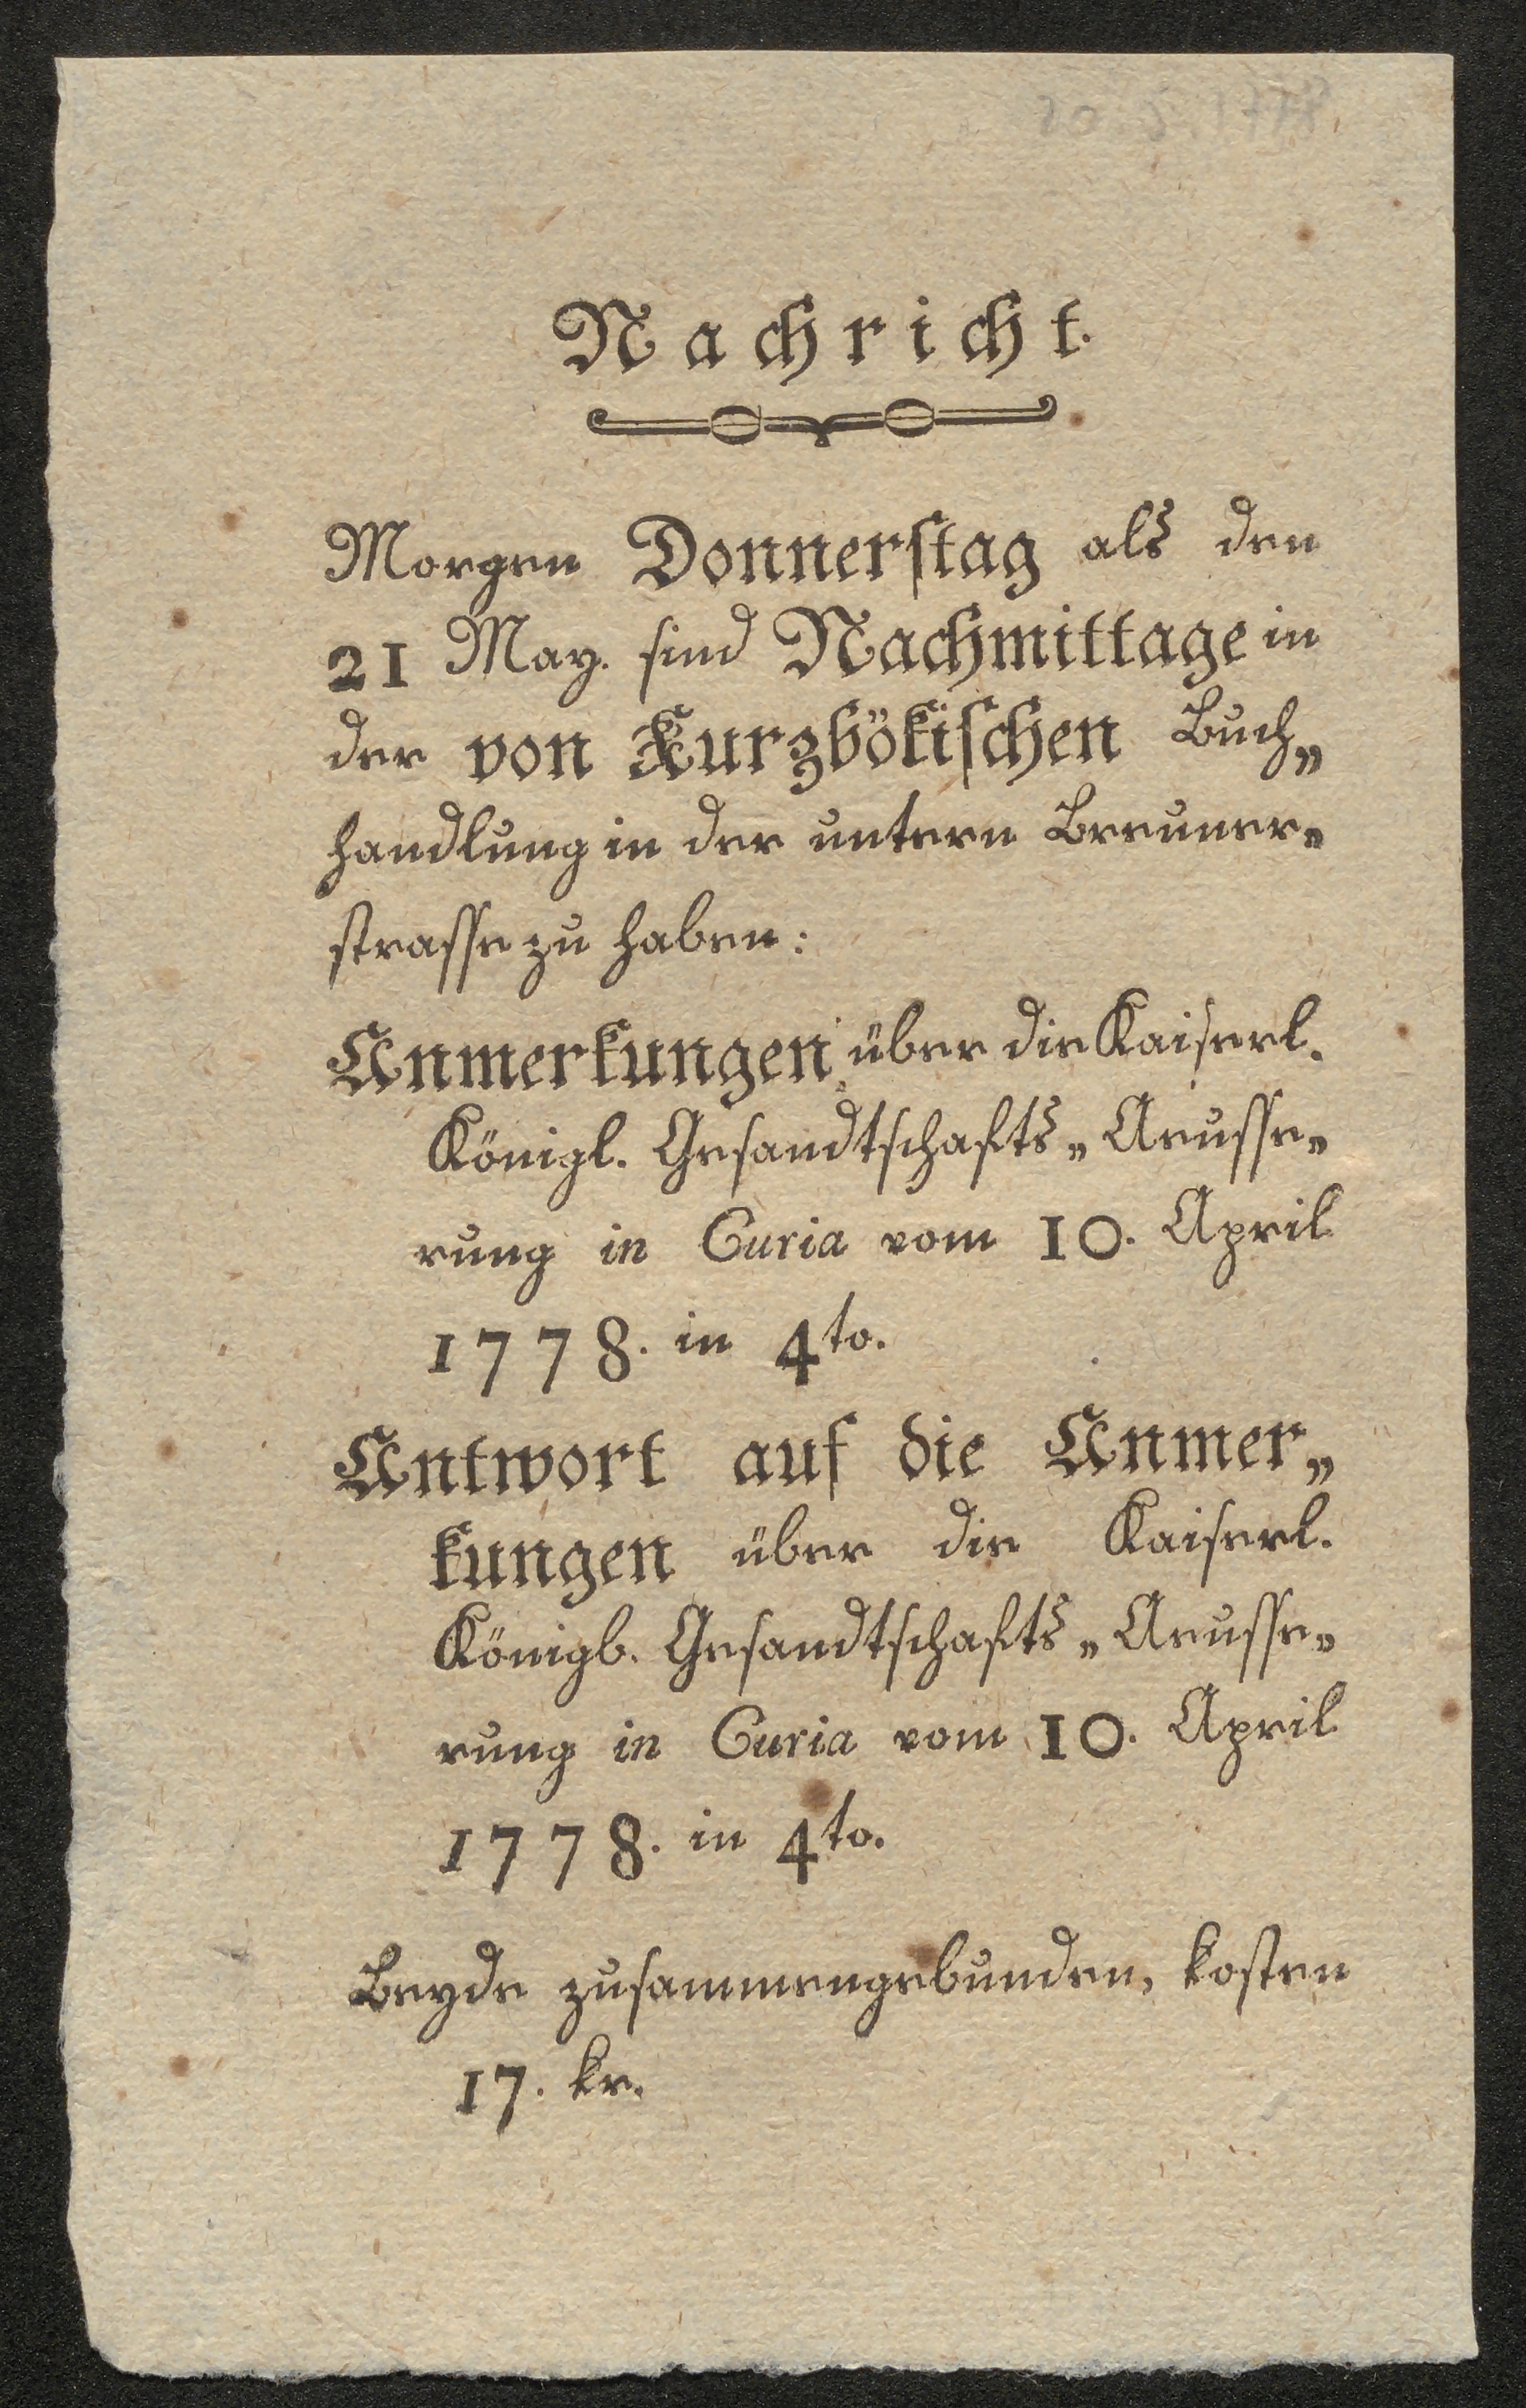 Nachricht.
Morgen Donnerstag als den
21 May. sind Nachmittage in
der von Kurzbökischen Buch„
handlung in der untern Breuner„
strasse zu haben:
Anmerkungen über die Kaiserl.
Königl. Gesandtschafts„Aeusse„
rung in Curia vom 10. April
1778. in 4to.
Antwort auf die Anmer„
kungen über die Kaiserl.
Königl. Gesandtschafts„Aeusse„
rung in Curia vom 10. April
1778. in 4to.
Beyde zusammengebunden, kosten
17. kr.